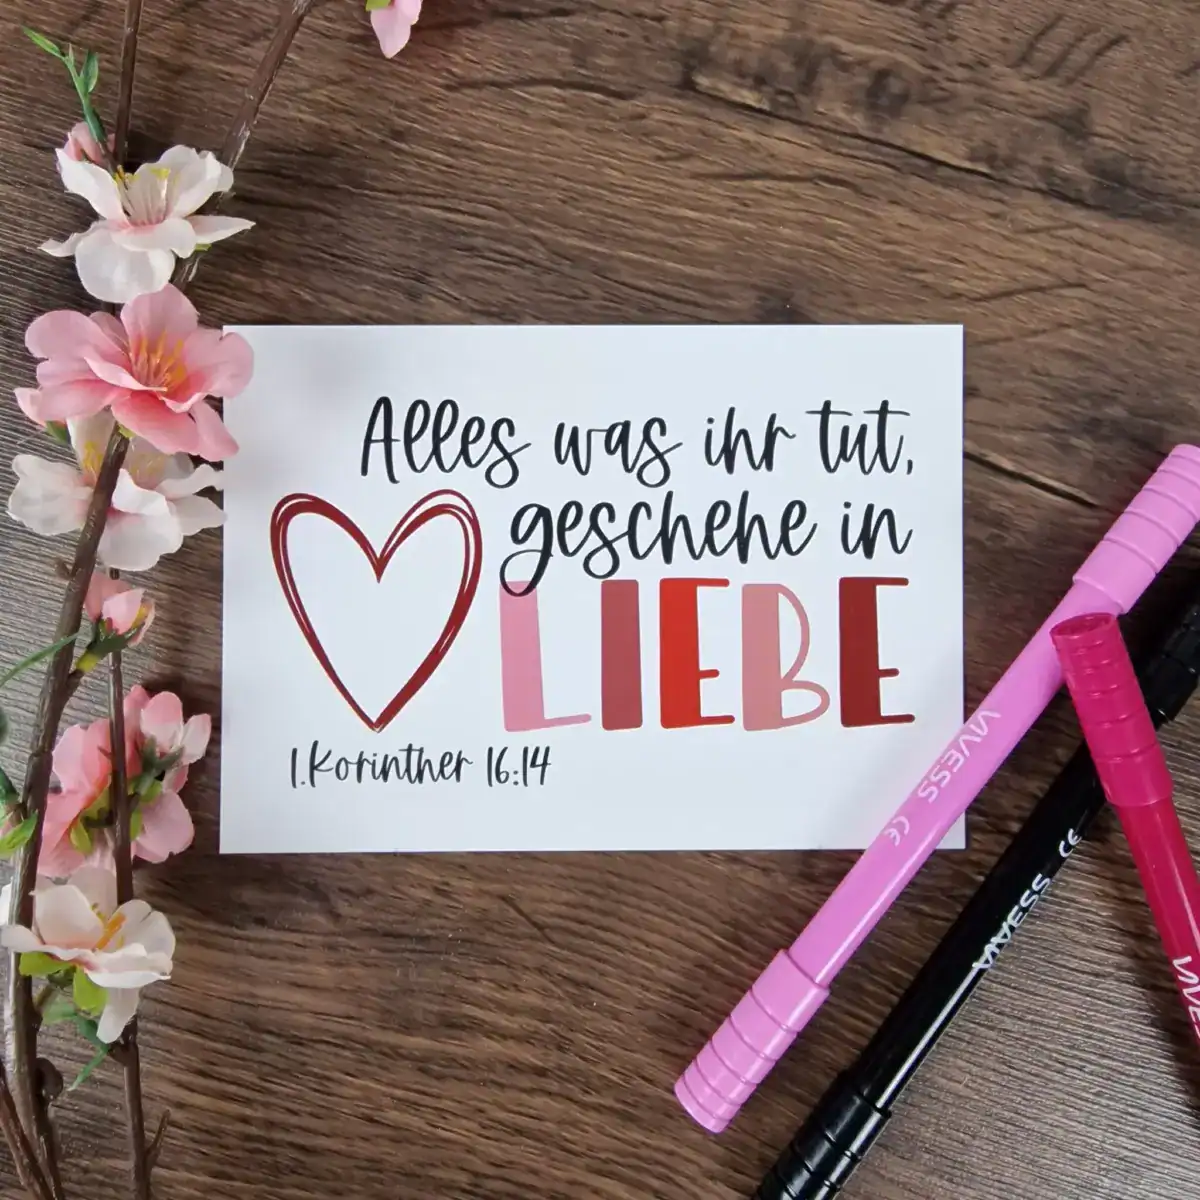 Alles was ihr tut,
geschehe in
LIEBE
1.Korinther 16:14
VIVESS
CE
VIVESS
CE